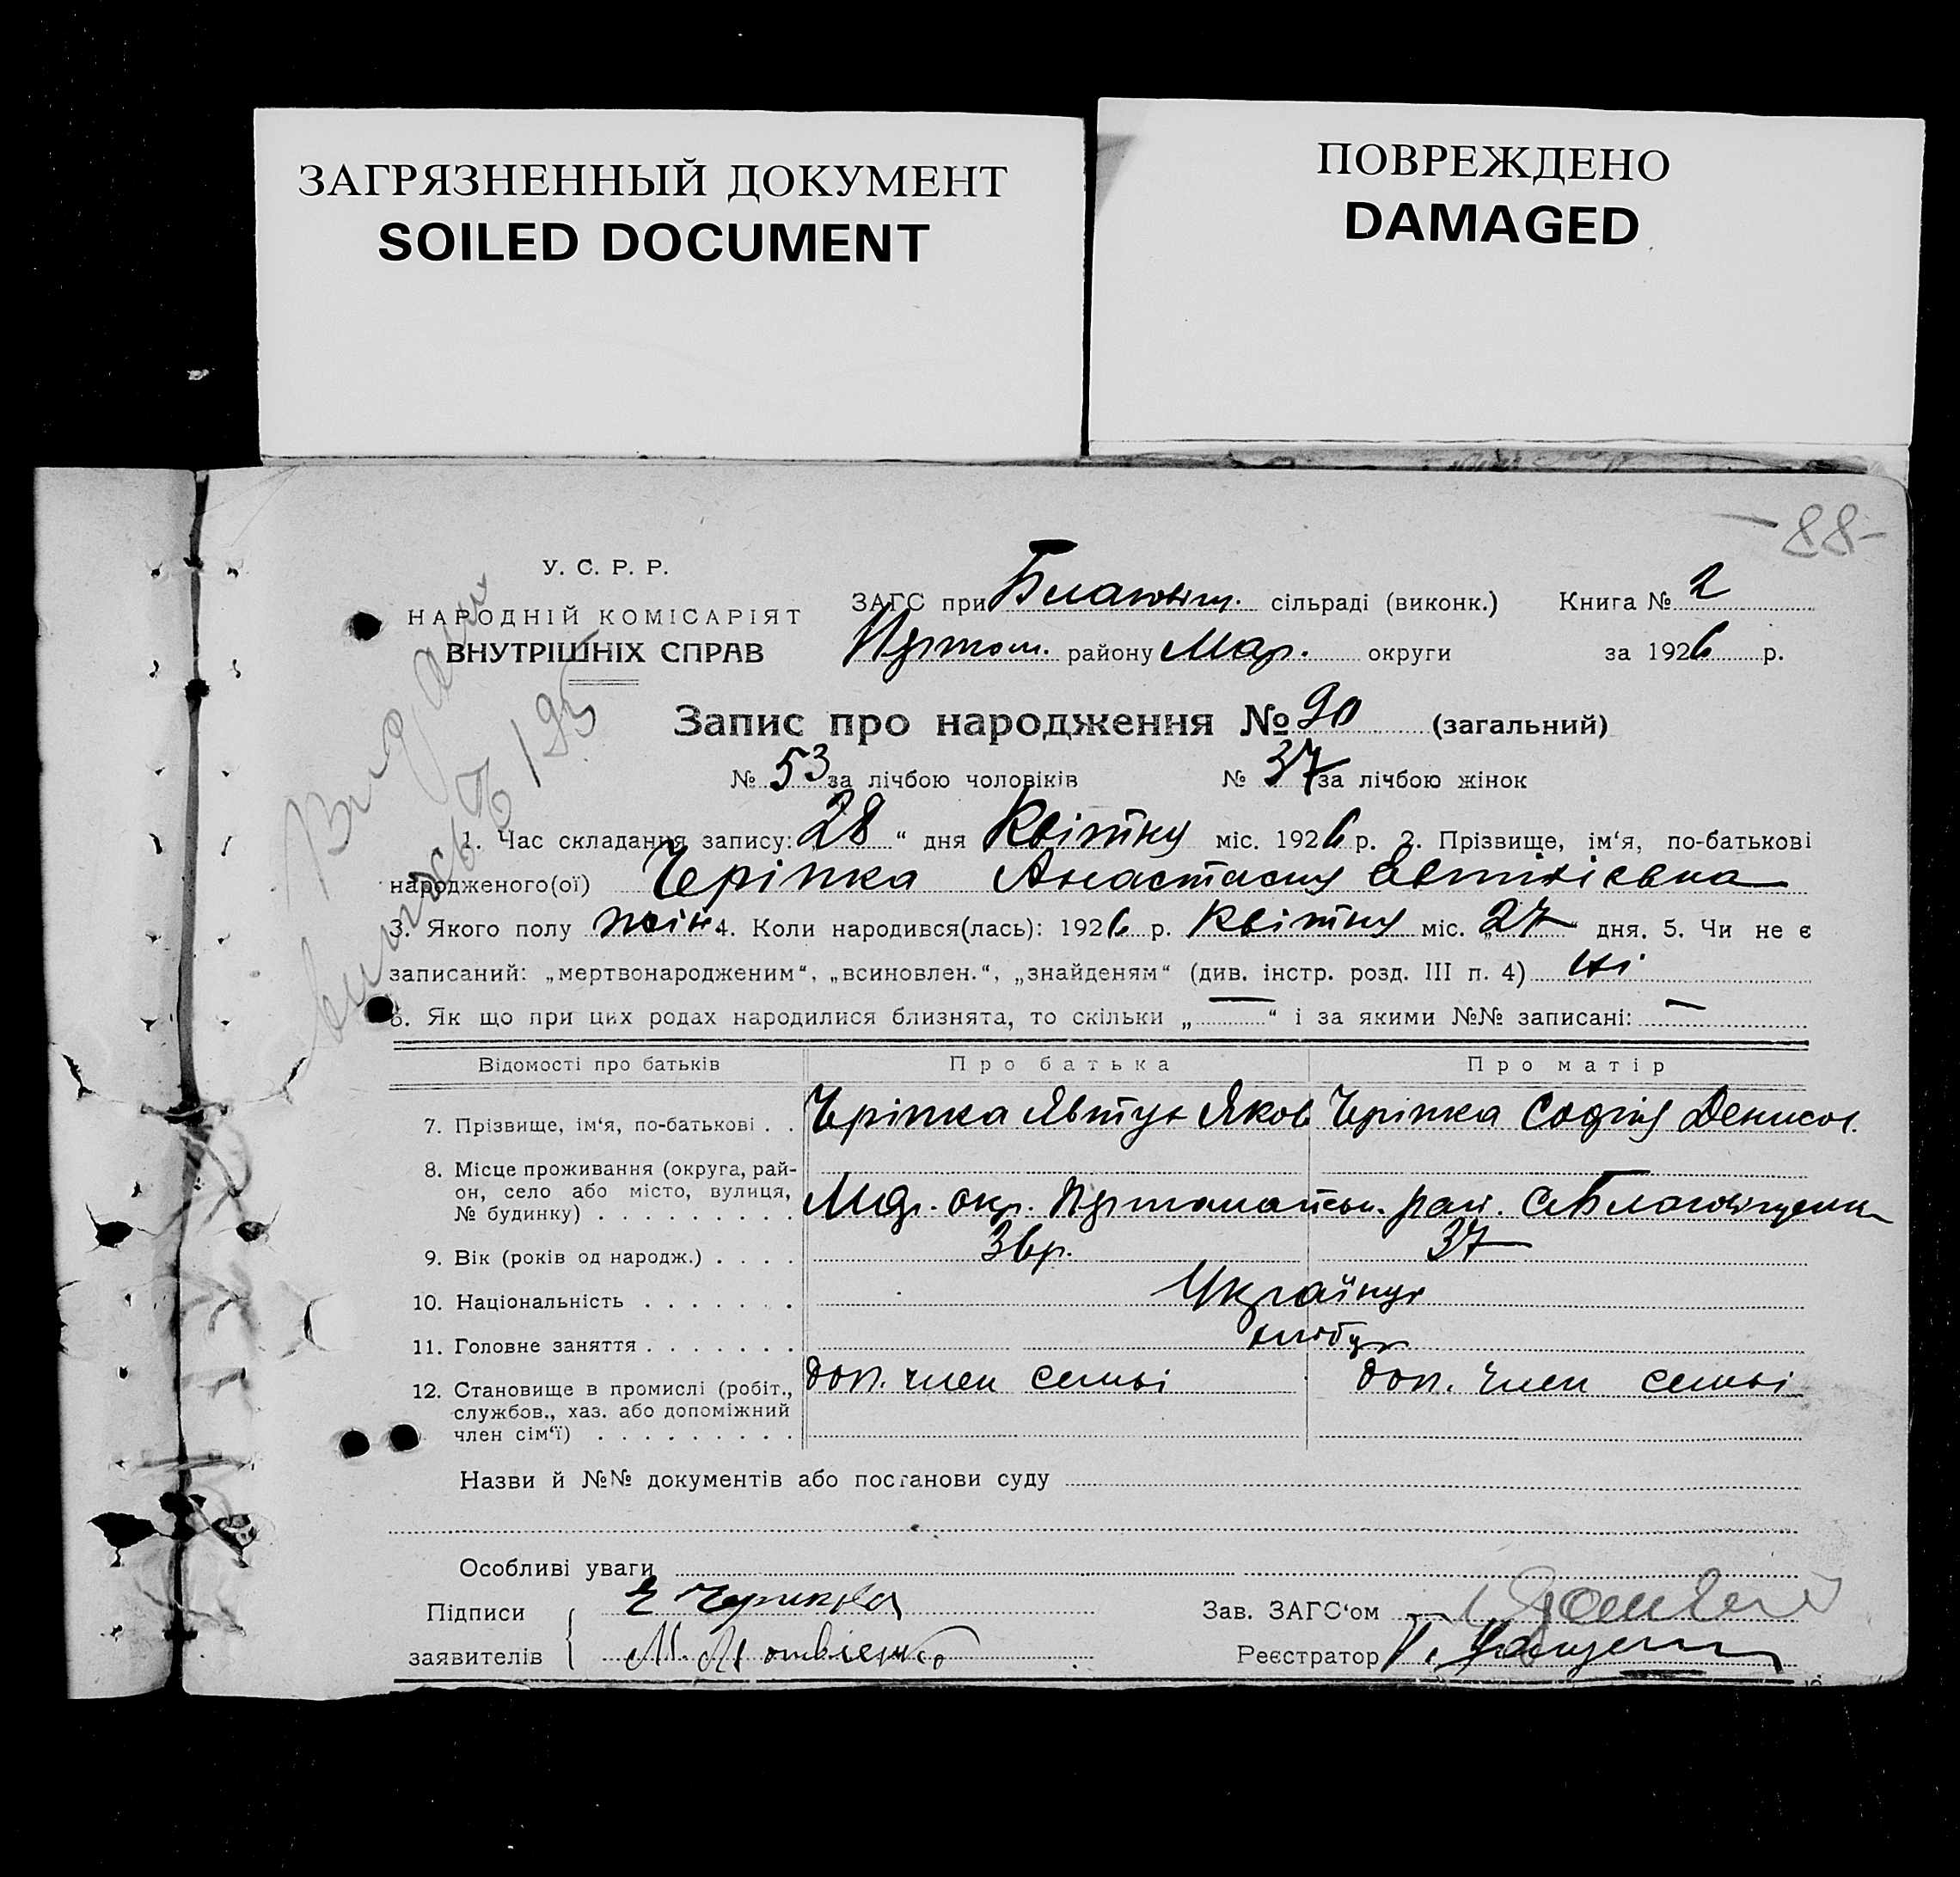 ЗАГРЯЗНЕННЫЙ ДОКУМЕНТ
SOILED DOCUMENT
ПОВРЕЖДЕНО
DAMAGED
-88-
У. С. Р. Р.
НАРОДНІЙ КОМІСАРІЯТ
ВНУТРІШНІХ СПРАВ
ЗАГС при Благовіщ. сільраді (виконк.) Книга № 2
району Мар. округи за 1926 р.
Запис про народження № 90 (загальний)
№ 53 за лічбою чоловіків № 37 за лічбою жінок
1. Час складання запису: 28 " дня Квітню міс. 1926 р. 2. Прізвище, ім'я, по-батькові
народженого(ої) Черіпка Анастасия Автихієвна
3. Якого полу жін. 4. Коли народився(лась): 1926 р. Квітню міс. „27" дня. 5. Чи не є
записаний: „мертвонародженим", „всиновлен.", „знайденям" (див. інстр. розд. III п. 4) Ні
6. Як що при цих родах народилися близнята, то скільки „ — " і за якими №№ записані: —
Відомості про батьків Про батька Про матір
7. Прізвище, ім'я, по-батькові . . Черіпка Явтух Яков Черіпка Софія Денисов.
8. Місце проживання (округа, рай-
он, село або місто, вулиця,
№ будинку) . . . . . . . . . Мар. окр. рай. с. Благовіщенка
9. Вік (років од народж.) . . . . 36 р. 37
10. Національність . . . . . . . Українці
11. Головне заняття . . . . . . . хлібор
12. Становище в промислі (робіт., доп. член семьі доп. член семьі
службов., хаз. або допоміжний
член сім'ї) . . . . . . . . .
Назви й №№ документів або постанови суду
Особливі уваги
Підписи
заявителів М. Матвієнко
Зав. ЗАГС'ом
Реєстратор